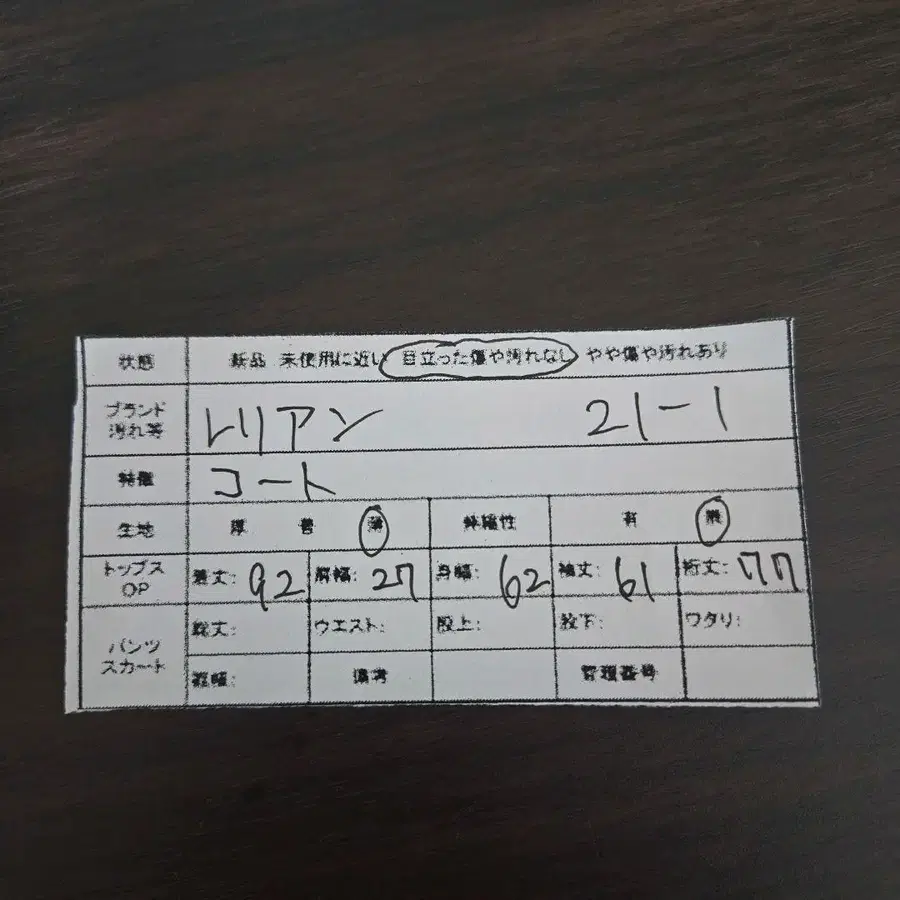 状態 新品 未使用に近い 目立った傷や汚れなし やや傷や汚れあり
ブランド 汚れ等 レリアン 21-1
特徴 コート
生地 厚 普 薄 伸縮性 有 無
トップス OP 着丈: 92 肩幅: 27 身幅: 62 袖丈: 61 裄丈: 77
パンツ スカート 総丈: ウエスト: 股上: 股下: ワタリ:
裾幅: 備考 管理番号